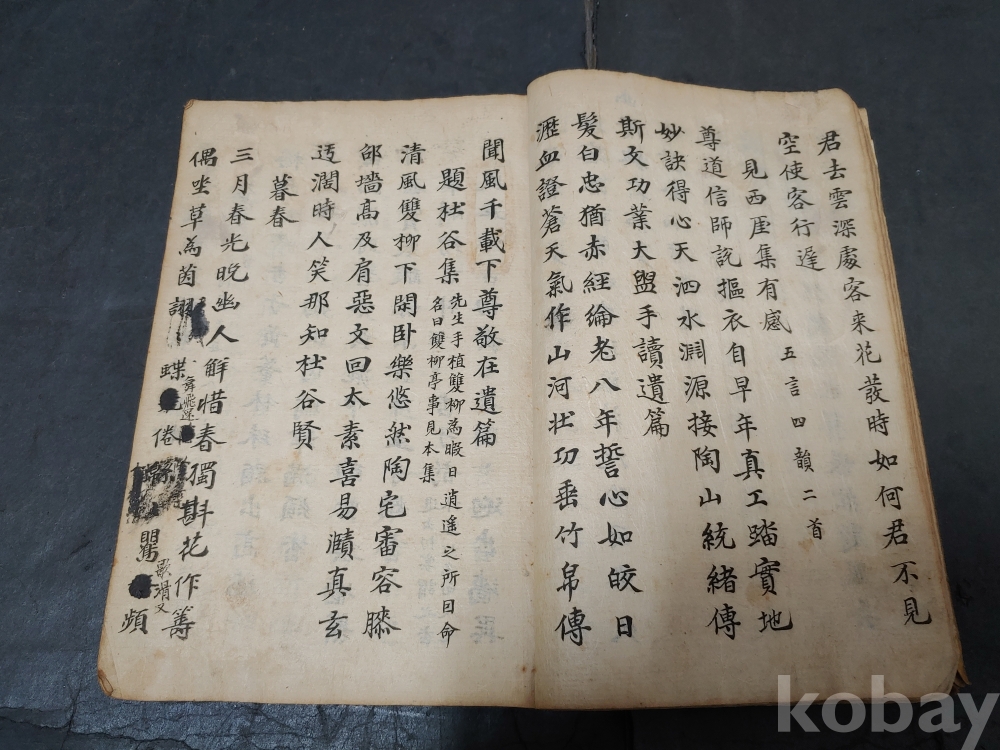 君去雲深處客来花發時如何君不見
空使客行遅
見西厓集有感 五言四韻二首
尊道信師說摳衣自早年真工踏實地
妙訣得心天泗水淵源接陶山統緒傳
斯文功業大盥手讀遺篇
髮白忠猶赤經綸老八年誓心如皎日
瀝血證蒼天氣作山河壮功垂竹帛傳
聞風千載下尊敬在遺篇
題杜谷集 先生手植雙柳為暇日逍遥之所曰命
名曰雙柳亭事見本集
清風雙柳下閑卧樂悠然陶宅審容膝
郃墻髙及肩惡文回太素喜易賾真玄
迃濶時人笑那知杜谷賢
暮春
三月春光晚幽人解惜春獨斟花作籌
偶坐草為茵
蝶
舞飛還
倦
罵
歌滑又
頻
kobay